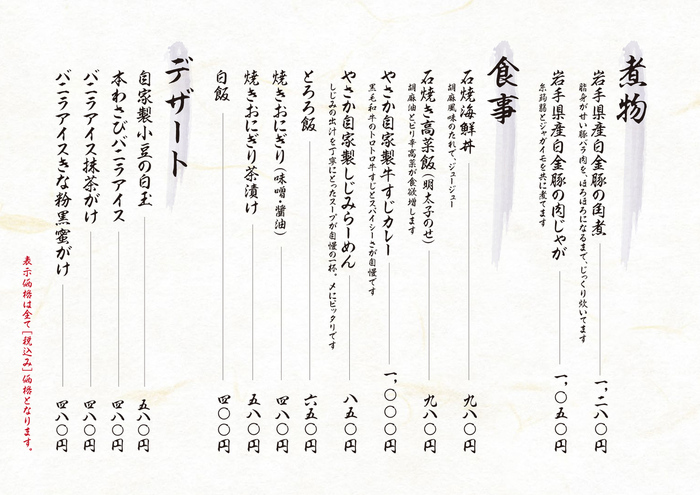 煮物
岩手県産白金豚の角煮 一、二八〇円
脂身が甘い豚バラ肉を、ほろほろになるまで、じっくり炊いてます
岩手県産白金豚の肉じゃが 一、〇五〇円
糸蒟蒻とジャガイモを共に煮てます
食事
石焼海鮮丼 九八〇円
胡麻風味のたれで、ジュージュー
石焼き高菜飯(明太子のせ) 九八〇円
胡麻油とピリ辛高菜が食欲増します
やさか自家製牛すじカレー 一、〇〇〇円
黒毛和牛のトロトロ牛すじとスパイシーさが自慢です
やさか自家製しじみらーめん 八五〇円
しじみの出汁を丁寧にとったスープが自慢の一杯。〆にピッタリです
とろろ飯 六五〇円
焼きおにぎり(味噌・醤油) 四八〇円
焼きおにぎり茶漬け 五八〇円
白飯 四〇〇円
デザート
自家製小豆の白玉 五八〇円
本わさびバニラアイス 四八〇円
バニラアイス抹茶がけ 四八〇円
バニラアイスきな粉黒蜜がけ 四八〇円
表示価格は全て[税込み]価格となります。